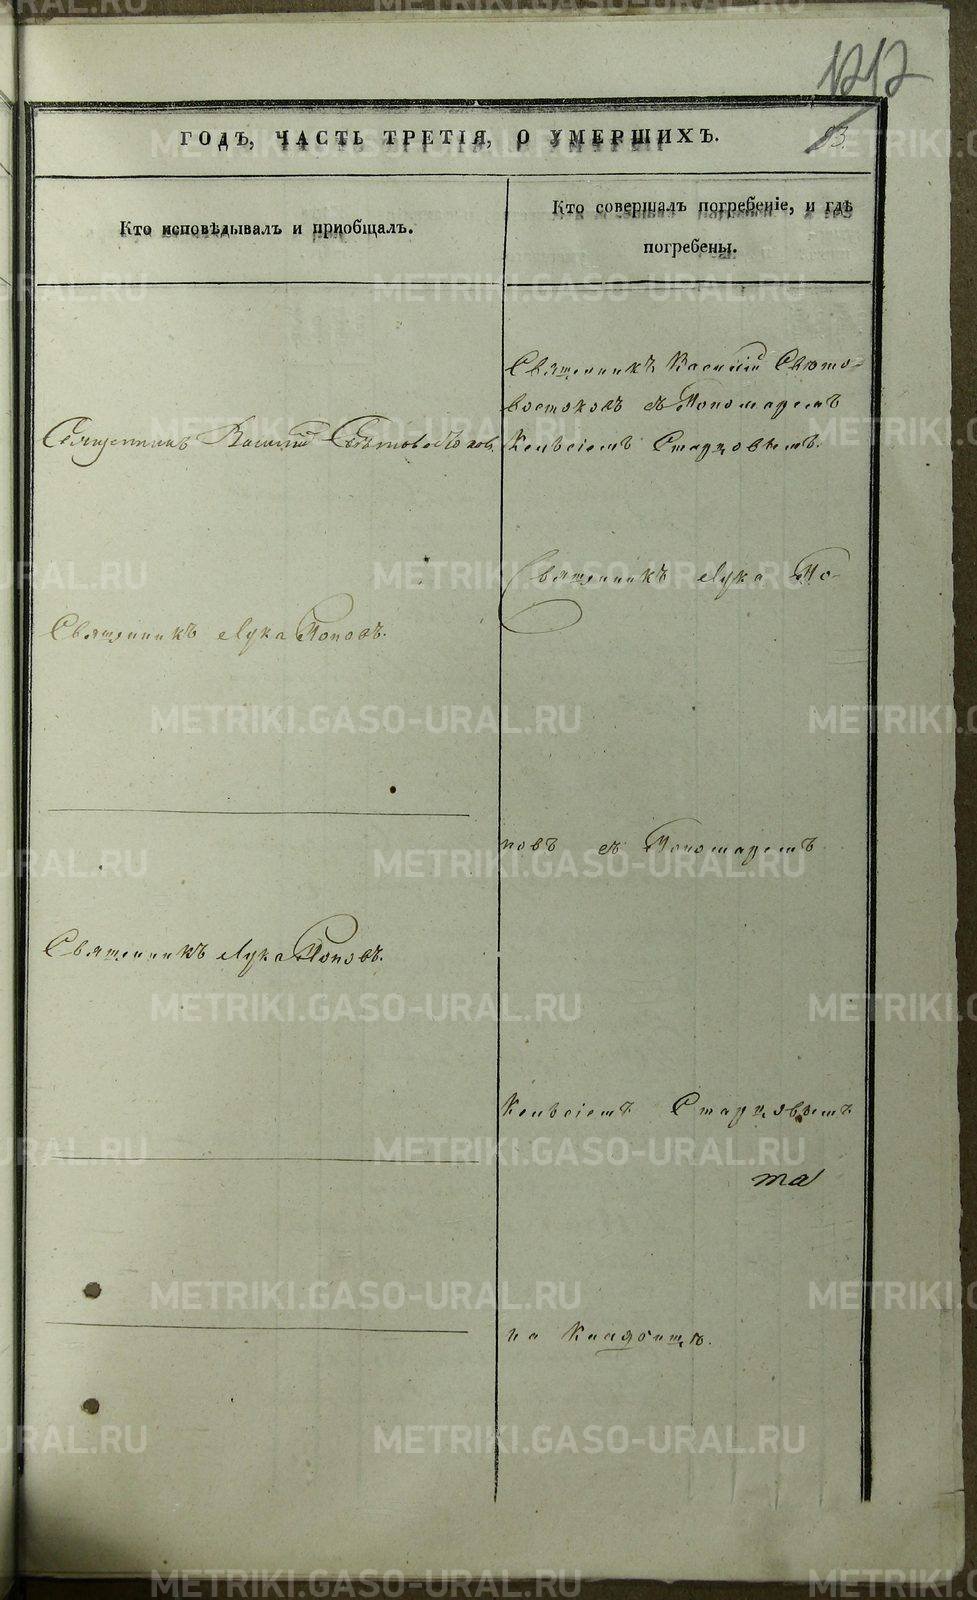 1212
93.
ГОДЪ, ЧАСТЬ ТРЕТІЯ, О УМЕРШИХЪ.
Кто исповѣдывалъ и пріобщалъ.
Кто совершалъ погребеніе, и гдѣ
погребены.
Священникъ Василій Свѣтовостоковъ.
Священникъ Василій Свѣто-
востоковъ съ Пономаремъ
Старцовымъ.
Священникъ Лука Поповъ.
Священникъ Лука По-
повъ съ Пономаремъ
Священникъ Лука Поповъ.
Старцовымъ
на Кладбищѣ.
METRIKI.GASO-URAL.RU